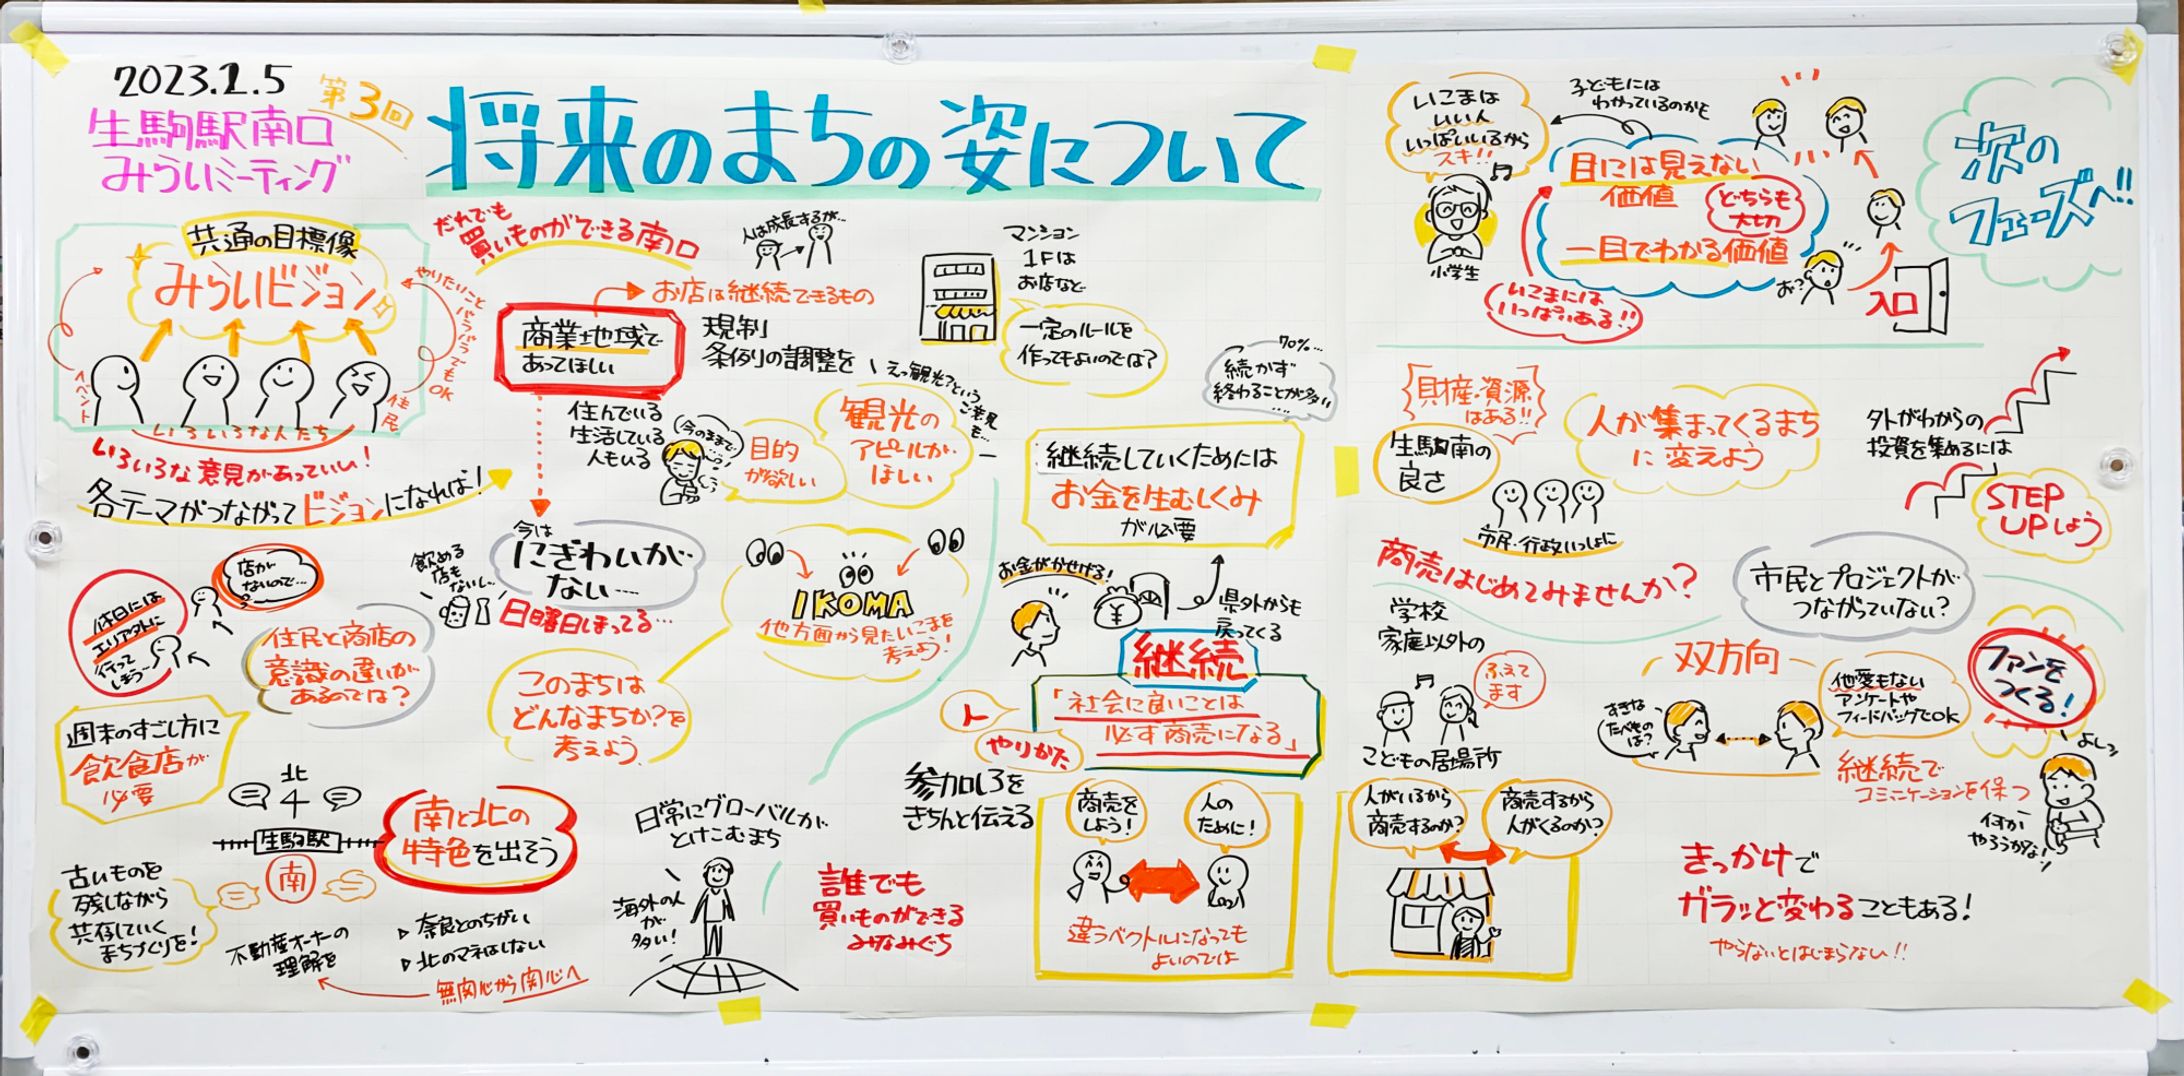 2023.2.5
生駒駅南口
みらいミーティング
第3回
将来のまちの姿について
共通の目標像
みらいビジョン
やりたいことバラバラでもOK
イベント
住民
いろいろな人たち
いろいろな意見があっていい!
各テーマがつながってビジョンになれば!
だれでも
買いものができる南口
人は成長するが…
お店は継続できるもの
商業地域で
あってほしい
規制
条例の調整を
マンション
1Fは
お店など
一定のルールを
作ってもよいのでは?
住んでいる
生活している
人もいる
今のままで…
目的
が欲しい
観光の
アピールが
ほしい
えっ観光?という
ご意見
も…
70%…
続かず
終わることが多い
….
継続していくためには
お金を生むしくみ
が必要
今は
にぎわいが
ない……
飲める
店も
ないし…
日曜日しまってる…
IKOMA
他方面から見たいこまを
考えよう!
このまちは
どんなまちか?を
考えよう
店が
ないので…
休日には
エリア外に
行って
しまう…
住民と商店の
意識の違いが
あるのでは?
週末のすごし方に
飲食店が
必要
北
生駒駅
南
南と北の
特色を出そう
古いものを
残しながら
共存していく
まちづくりを!
不動産オーナーの
理解を
▷奈良とのちがい
▷北のマネはしない
無関心から関心へ
日常にグローバルが
とけこむまち
海外の人
が
多い!
お金がかせげる!
¥
県外からも
戻ってくる
継続
「社会に良いことは
必ず商売になる」
人
やりかた
参加しろを
きちんと伝える
誰でも
買いものができる
みなみぐち
商売を
しよう!
人の
ために!
違うベクトルになっても
よいのでは
いこまは
いい人
いっぱいいるから
スキ!!
小学生
子どもには
わかっているのかも
目には見えない
価値
どちらも
大切
一目でわかる価値
いこまには
いっぱいある!!
お?
入口
次の
フェーズへ!!
財産・資源
はある!!
生駒南の
良さ
市民・行政いっしょに
人が集まってくるまち
に変えよう
外がわからの
投資を集めるには
STEP
UPしよう
商売はじめてみませんか?
市民とプロジェクトが
つながっていない?
学校
家庭以外の
ふえて
ます
こどもの居場所
双方向
すきな
たべもの
は?
他愛もない
アンケートや
フィードバックでOK
ファンを
つくる!
継続で
コミュニケーションを保つ
よしっ
何か
やろうかな!
人がいるから
商売するのか?
商売するから
人がくるのか?
きっかけで
ガラッと変わることもある!
やらないとはじまらない!!